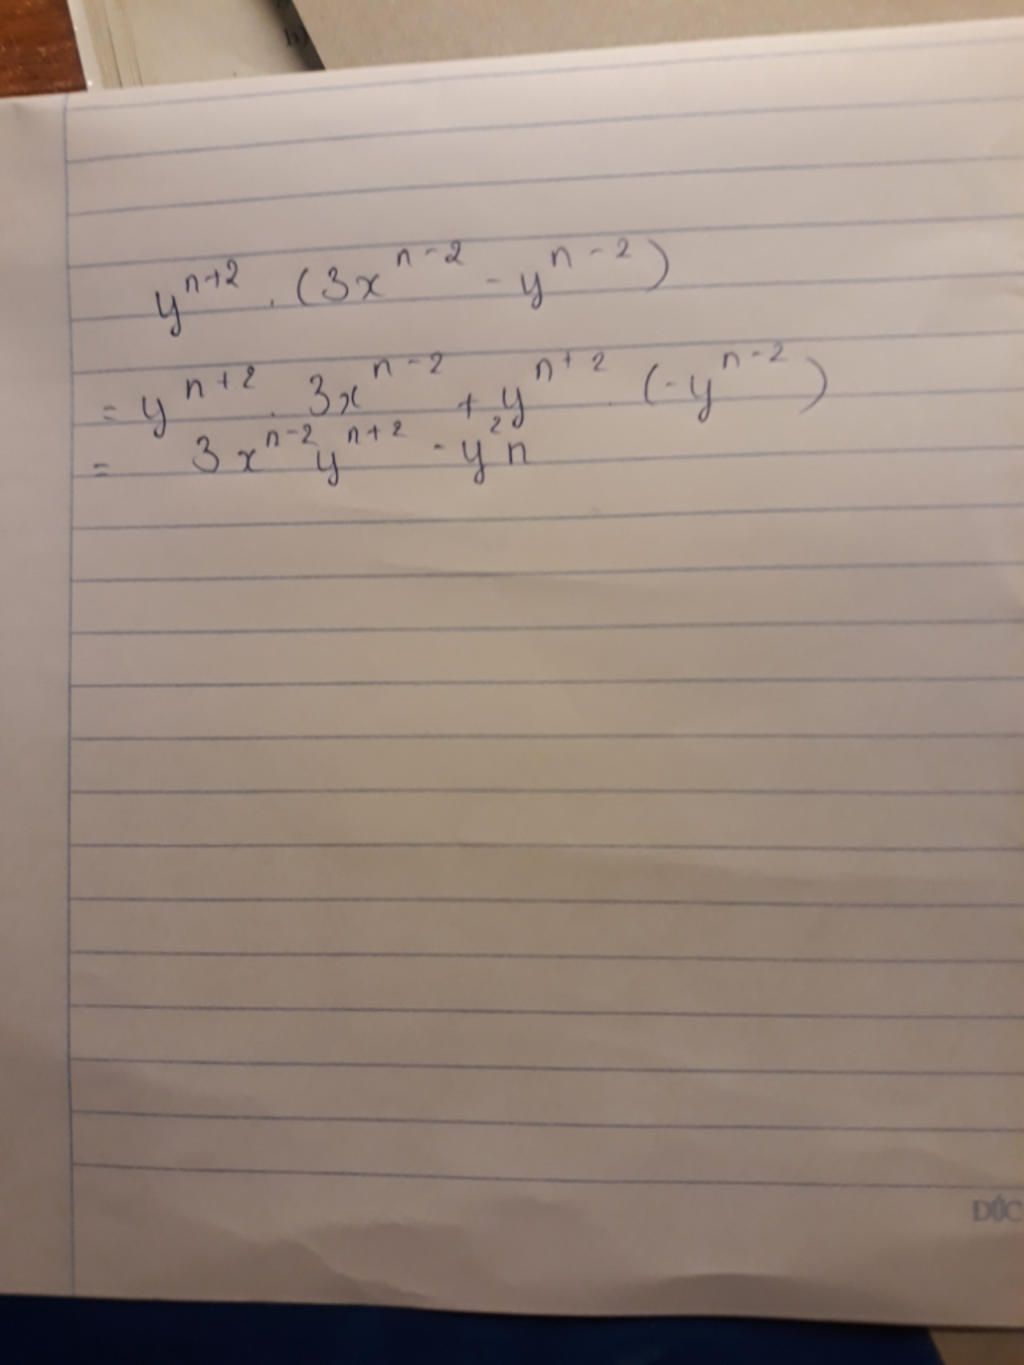 y^{n+2} . (3x^{n-2} - y^{n-2})
= y^{n+2} . 3x^{n-2} + y^{n+2} . (-y^{n-2})
= 3x^{n-2}y^{n+2} - y^2n